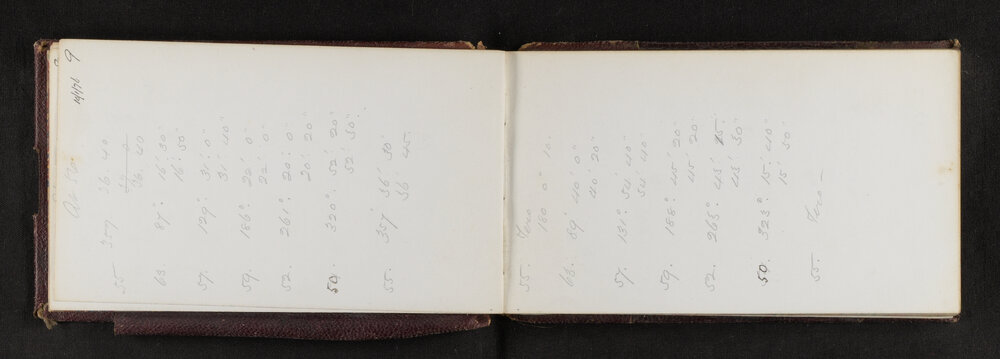 9
At Stn.
55 357 36. 40
36. 40
63. 87°. 15′. 30″
16′. 50″
57. 129°. 31′. 0″
31′. 40″
59. 186°. 22′. 0″
22′. 0″
52. 261°. 20′. 0″
20′. 20″
50. 320°. 52′. 20″
52′. 50″
55. 357° 36′ 30″
36′ 45″
55. Zero
180 0″ 10″
63. 89° 40′ 0″
40′ 20″
57. 131° 54′ 40″
54′ 40″
59. 188°. 45′. 20″
45′. 20″
52. 263°. 43′. 15″
43′. 30″
50. 323°. 15′. 40″
15′. 50″
55. Zero —